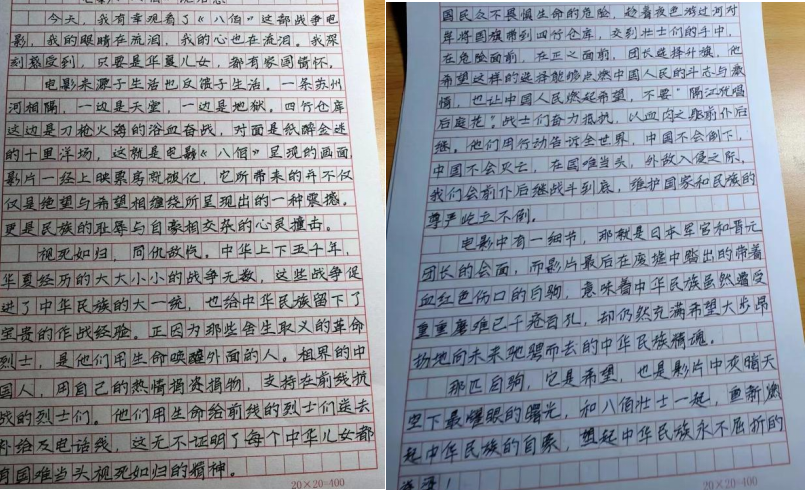 今天,我有幸观看了《八佰》这部战争电
影,我的眼睛在流泪,我的心也在流泪。我深
刻感受到,只要是华夏儿女,都有家国情怀。
电影来源于生活也反馈于生活。一条苏州
河相隔,一边是天堂,一边是地狱。四行仓库
这边是刀枪火海的浴血奋战,对面是纸醉金迷
的十里洋场,这就是电影《八佰》呈现的画面,
影片一经上映票房就破亿,它所带来的并不仅
仅是绝望与希望相缠绕所呈现出的一种震撼,
更是民族的耻辱与自豪相交杂的心灵撞击。
视死如归,同仇敌忾。中华上下五千年,
华夏经历的大大小小的战争无数,这些战争促
进了中华民族的大一统,也给中华民族留下了
宝贵的作战经验。正因为那些舍生取义的革命
烈士,是他们用生命唤醒外面的人。租界的中
国人,用自己的热情捐资捐物,支持在前线抗
战的烈士们。他们用生命给前线的烈士们送去
补给及电话线,这无不证明了每个中华儿女都
有国难当头视死如归的精神。
20×20=400
国民众不畏惧生命的危险,趁着夜色游过河对
岸将国旗带到四行仓库,交到壮士们的手中,
在危险面前,在正义面前,团长选择升旗,他
希望这样的选择能够点燃中国人民的斗志与激
情,也让中国人民燃起希望,不要"隔江犹唱
后庭花"。战士们奋力抵抗,以血肉之躯前仆后
继。他们用行动告诉全世界,中国不会倒下,
中国不会灭亡,在国难当头,外敌入侵之际,
我们会前仆后继战斗到底,维护国家和民族的
尊严屹立不倒。
电影中有一细节,那就是日本军官和晋元
团长的会面,而影片最后在废墟中踏出的带着
血红色伤口的白驹,意味着中华民族虽然遭受
重重磨难已千疮百孔,却仍然充满希望大步昂
扬地向未来驰骋而去的中华民族精魂。
那匹白驹,它是希望,也是影片中灰暗天
空下最耀眼的曙光,和八佰壮士一起,重新燃
起中华民族的自豪,塑起中华民族永不屈折的
20×20=400